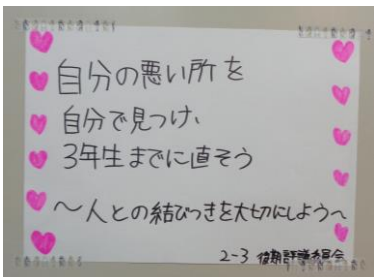 自分の悪い所を
自分で見つけ、
3年生までに直そう
〜人との結びつきを大切にしよう〜
2-3 後期評議委員会